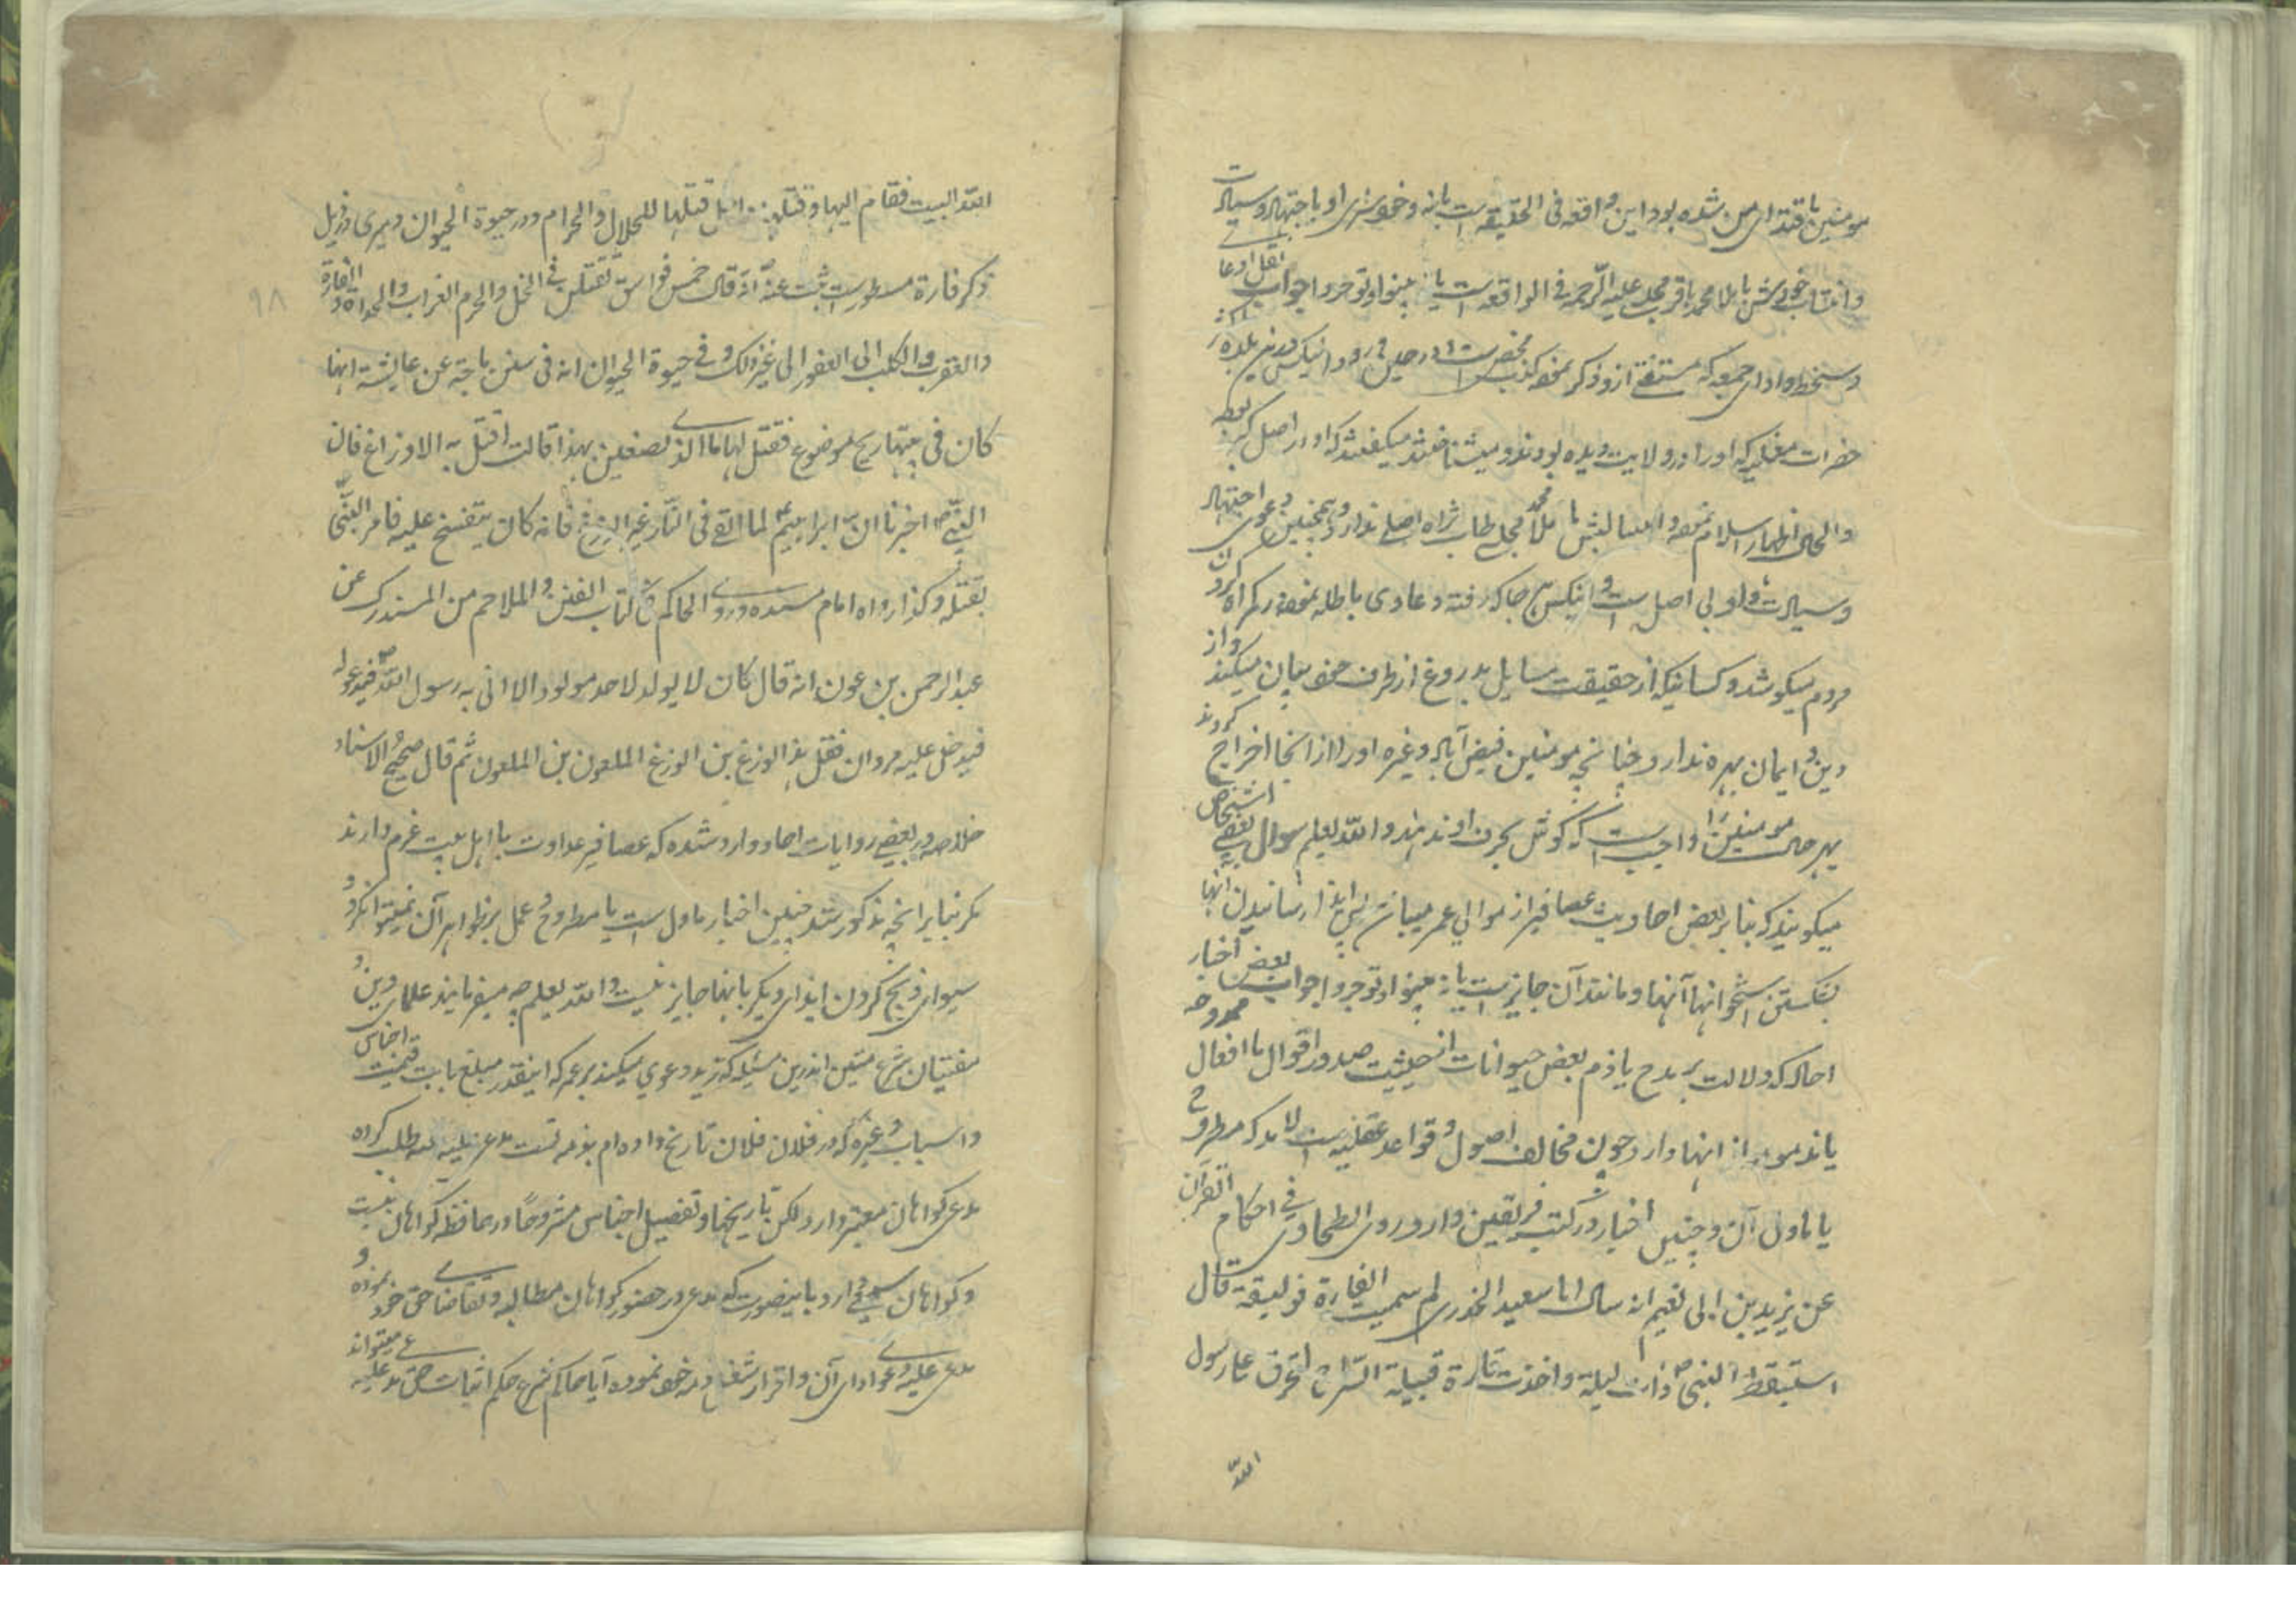 مومنین باقتدای من شده بود این واقعه فی الحقیقه است یا نه و خویشی او باجتهاد و سیادت
و انتساب خویش با ملا محمد باقر مجلسی علیه الرحمه فی الواقعه است یا نه بینوا و توجروا جواب نقل ادعا
دستخط و ادای جمعه که مستفتی ازو ذکر نموده کذب محض است و در حین ورود اینکس درین بلده
حضرات مغلیه که او را در ولایت دیده بودند و میشناختند میگفتند که او در اصل
والحال اظهار اسلام نموده انتسابش با ملا محمد مجلسی طاب ثراه اصلی ندارد و همچنین دعوی اجتهاد
و سیادت او بی اصل است و اینکس هر جا که رفته دعاوی باطله نموده در گمراه کردن
مردم میکوشد و کسانیکه از حقیقت مسایل بدروغ از طرف خود بیان میکنند و از
دین و ایمان بهره ندارد چنانچه مومنین فیض آباد و غیره او را از آنجا اخراج کردند
بهرحال مومنین را واجب است که گوش بحرف او ندهند والله یعلم سوال بعضی اشخاص
میگویند که بنا بر بعض احادیث عصافیر از موالی عمر میباشند پس ایذا رسانیدن آنها
بشکستن استخوانها آنها و مانند آن جایز است یا نه بینوا و توجروا جواب بعض اخبار
احاد که دلالت بر مدح یا ذم بعض حیوانات از حیثیت صدور اقوال یا افعال ممدوحه
یا مذمومه از انها دارد چون مخالف اصول و قواعد عقلیه است لابد که مطروح
یا ماول آن و چنین اخبار در کتب فریقین وارد و روی الطحاوی فی احکام القرآن
عن یزید بن ابی نعیم انه سال ابا سعید الخدری لم سمیت الفارة فویسقة قال
استیقظ النبی ص ذات لیلة و اخذت فارة فتیلة السراج لتحرق علی رسول
الله
الله البیت فقام الیها و قتلها و احل قتلها للحلال والحرام و در حیوة الحیوان دمیری در ذیل
ذکر فاره مسطور است ثبت عنه ص انه قال خمس فواسق تقتلن فی الحل والحرم الغراب والحداة والفارة
والعقرب والکلب العقور الی غیر ذلک و فی حیوة الحیوان انه فی سنن ماجة عن عایشة انها
کان فی بیتها رمح موضوع فقیل لها ما الذی تصنعین بهذا قالت اقتل به الاوزاغ فان
النبی ص اخبرنا ان ابراهیم ع لما القی فی النار غیر الوزغ فانه کان ینفخ علیه فامر النبی
بقتله و کذا رواه امام مسنده و روی الحاکم فی کتاب الفتن والملاحم من المستدرک عن
عبدالرحمن بن عوف انه قال کان لا یولد لاحد مولود الا اتی به رسول الله ص فیدعو له
فیدخل علیه مروان فقال هذا الوزغ بن الوزغ الملعون بن الملعون ثم قال صحیح الاسناد
خلاصه در بعضی روایات احاد وارد شده که عصافیر عداوت با اهل بیت ع هم دارند
مگر بنا بر انچه مذکور شد چنین اخبار ماول است یا مطروح و عمل بر ظواهر آن نمیتوان کرد و
سوای ذبح کردن ایذای دیگر بانها جایز نیست والله یعلم چه میفرمایند علمای دین و
مفتیان شرع متین اندرین مسئله که زید دعوی میکند بر عمر که اینقدر مبلغ بابت قیمت اجناس
و اسباب و غیره که در فلان فلان تاریخ داده ام بذمه تست مدعی علیه طلب کرده
مدعی گواهان معتبر دارد لکن تاریخها و تفصیل اجناس مشروحا در حافظه گواهان نیست
و گواهان سمعی دارد باینصورت که مدعی در حضور گواهان مطالبه و تقاضای حق خود نموده و
مدعی علیه وعدای ادای آن و اقرار شغل ذمه خود نموده آیا حاکم شرع حکم اثبات حق مدعی علیه میتواند